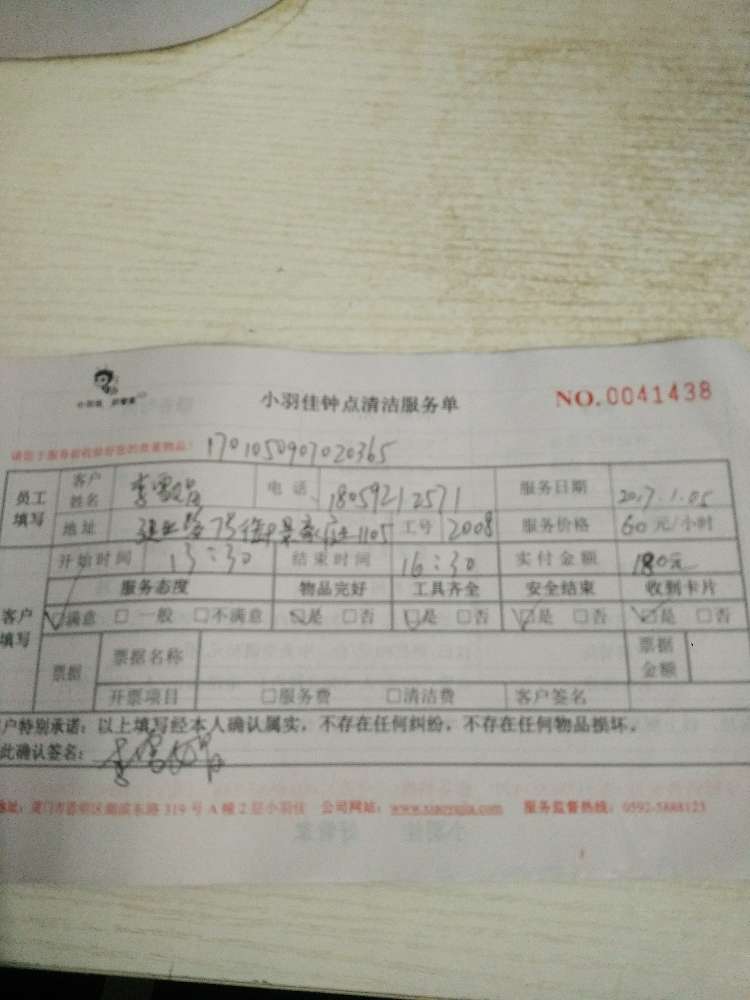 小羽佳钟点清洁服务单 NO.0041438
1701050907020365
员工填写 客户姓名 电话 18059212571 服务日期 2017.1.05
地址 1105 工号 2008 服务价格 60元/小时
开始时间 13:30 结束时间 16:30 实付金额 180元
服务态度 物品完好 工具齐全 安全结束 收到卡片
客户填写 ☑满意 □一般 □不满意 ☑是 □否 ☑是 □否 ☑是 □否 ☑是 □否
票据 票据名称 票据金额
开票项目 □服务费 □清洁费 客户签名
户特别承诺：以上填写经本人确认属实，不存在任何纠纷，不存在任何物品损坏。
此确认签名：
地址：厦门市思明区湖滨东路319号A幢2层小羽佳 公司网站：www.xiaoyujia.com 服务监督热线：0592-5888123